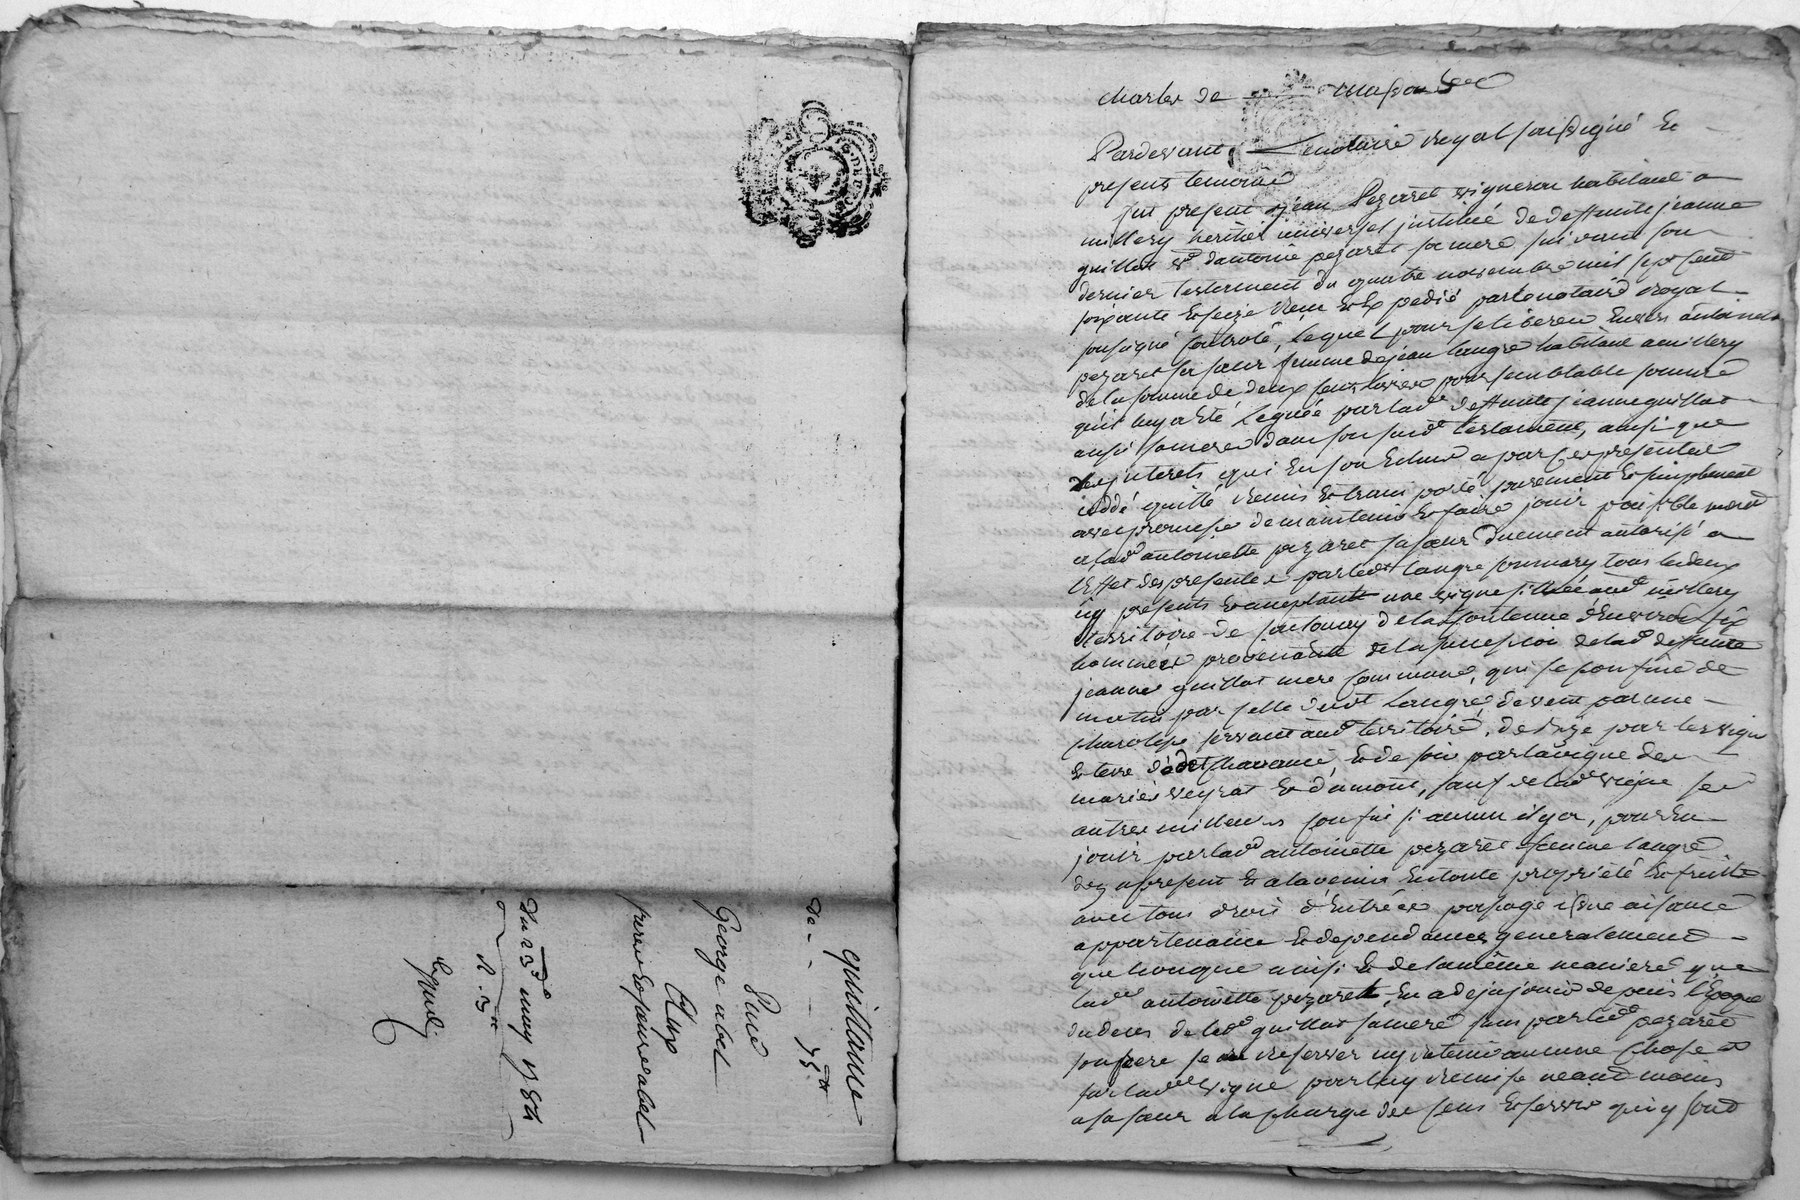 quittance
de - - - 75.tt
Pierre
George abel
Aux
pierre et Jeanne abel
Du 23e may 1784
R. 3tt
charles de
Pardevant Le notaire royal soussigné et
presents temoins
fut present jean Pezaret vigneron habitant a
millery heritier universel institué de deffunte jeanne
guillot ve d'antoine pezaret sa mere suivant son
dernier testament du quatre novembre mil sept cent
soixante et seize Reçu et Expedié par le notaire royal
soussigné controlé, lequel pour se liberer Envers antoinette
pezaret sa sœur femme de jean Langre habitant a millery
de la somme de deux cents livres pour semblable somme
qu'il luy a été Leguée par lade deffunte jeanne guillot
aussi sa mere dans son susdt testament, ainsi que
des interets qui En sont Echus a par ces presentes
cedé quitté Remis et transporté purement et simplement
avec promesse de maintenir et faire jouir paisiblement
a lade antoinette pezaret sa sœur duement autorisé a
l'Effet des presentes par ledt Langre son mary tous les deux
icy presents et acceptants une vigne située aud millery
territoire de de la fontenne d'Environ six
hommées provenante de la succession de lade deffunte
jeanne guillot mere commune, qui se confine de
matin par celle dudt Langre, de vent par une
servant aud territoire, de bize par les vigne
et terre dudt Chavanne, et de soir par la vigne des
mariés veyrat et dumont, sauf de lade vigne ses
autres meilleurs confins si aucun il y a, pour En
jouir par lade antoinette pezaret femme Langre
dez apresent et a lavenir En toute propriété et fruits
avec tous droits d'Entrées passage issue aisance
appartenance et dependances generalement
quelconque ainsi et de la même maniere que
lade antoinette pezaret En a deja jouis depuis l'Epoque
du deces de lade guillot sa mere sans par led pezaret
son frere se reserver ny retenir aucune chose
sur lade vigne par luy remise neandmoins
a sa sœur a la charge des cens et servis qui y sont